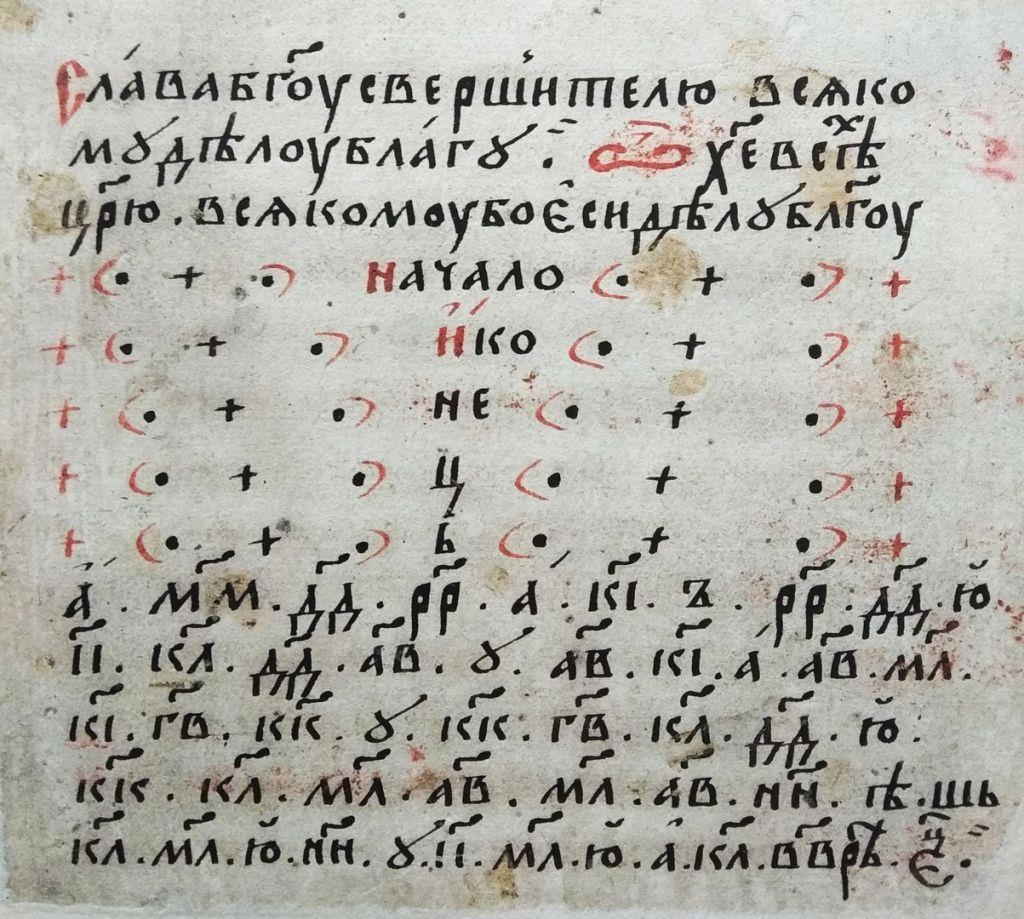 Сла́вабг҃оусверши́телю всѧко
мꙋдѣлоублагꙋ : хе҃всѣⷯ
цр҃ю . всѧкомоубоє̂сидѣлꙋбл҃гоу
+ ( • + • ) начало ( • + • ) +
+ ( • + • ) и҆ко ( • + • ) +
+ ( • + • ) не ( • + • ) +
+ ( • + • ) ц ( • + • ) +
+ ( • + • ) ь ( • + • ) +
а҆ . мм҃ . дд҃ . рр҃ . а҆ . кі҃ . ꙁ . рр҃ . дд҃ . ю҆
іі҃ . кл҃ . дд҃ . ав҃ . ꙋ . ав҃ . кі҃ . а҆ . ав҃ . мл҃ .
кі҃ . гв҃ . кк҃ . ꙋ . кк҃ . гв҃ . кл҃ . дд҃ . ю҆ :
кк҃ . кл҃ . мл҃ . ав҃ . мл҃ . ав҃ . нн҃ . гѣ . шь
кл҃ . мл҃ . ю҆ . нн҃ . ꙋ . іі҃ . мл҃ . ю҆ . а҆ . кл҃ . вв҃рѣ .